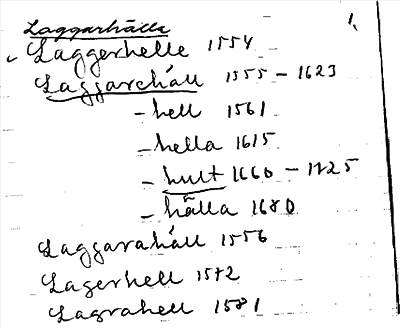 Laggarhälla 1.
Laggerhelle 1554
Laggarehäll 1555 - 1623
- hell 1561
- hella 1615
- hult 1660 - 1725
- hälla 1680
Laggarahäll 1556
Lagerhell 1572
Lagrahell 1581